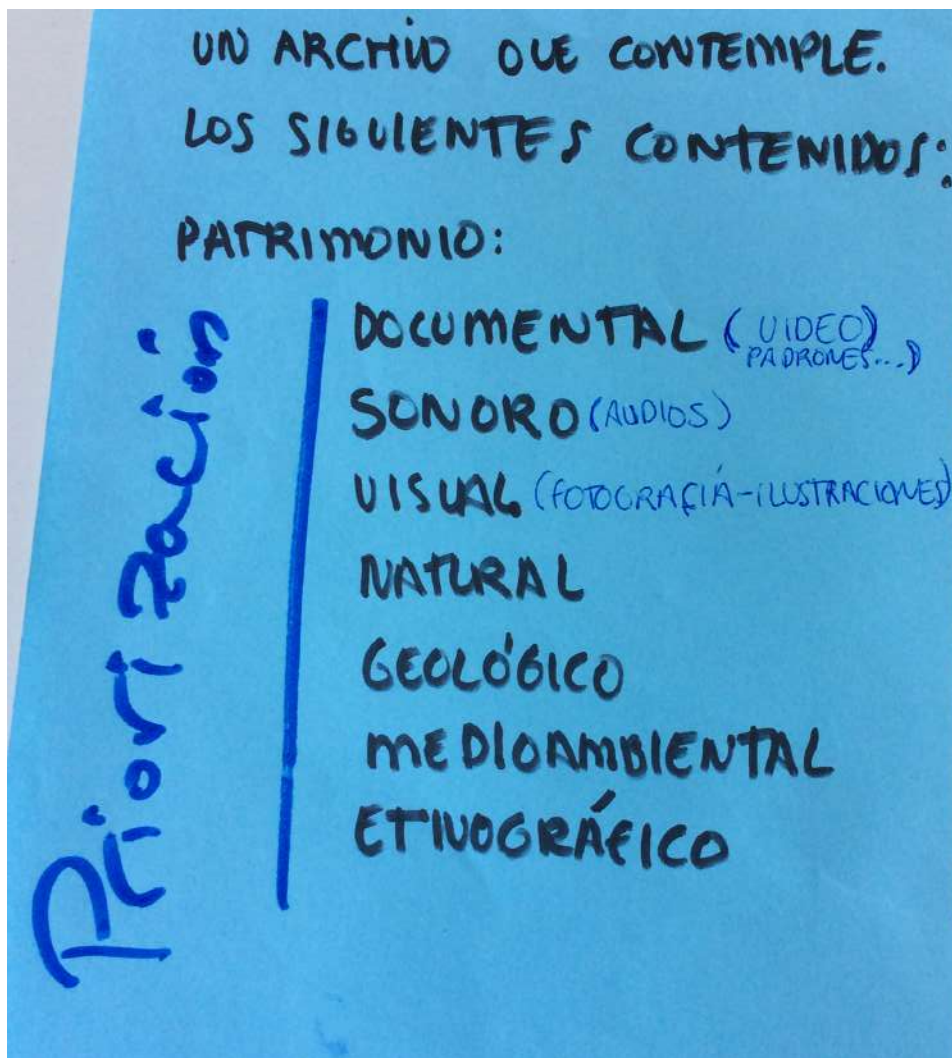 UN ARCHIVO QUE CONTEMPLE.
LOS SIGUIENTES CONTENIDOS:
PATRIMONIO:
Priorización
DOCUMENTAL (VIDEO)
PADRONES...)
SONORO (AUDIOS)
VISUAL (FOTOGRAFÍA-ILUSTRACIONES)
NATURAL
GEOLÓGICO
MEDIOAMBIENTAL
ETNOGRÁFICO